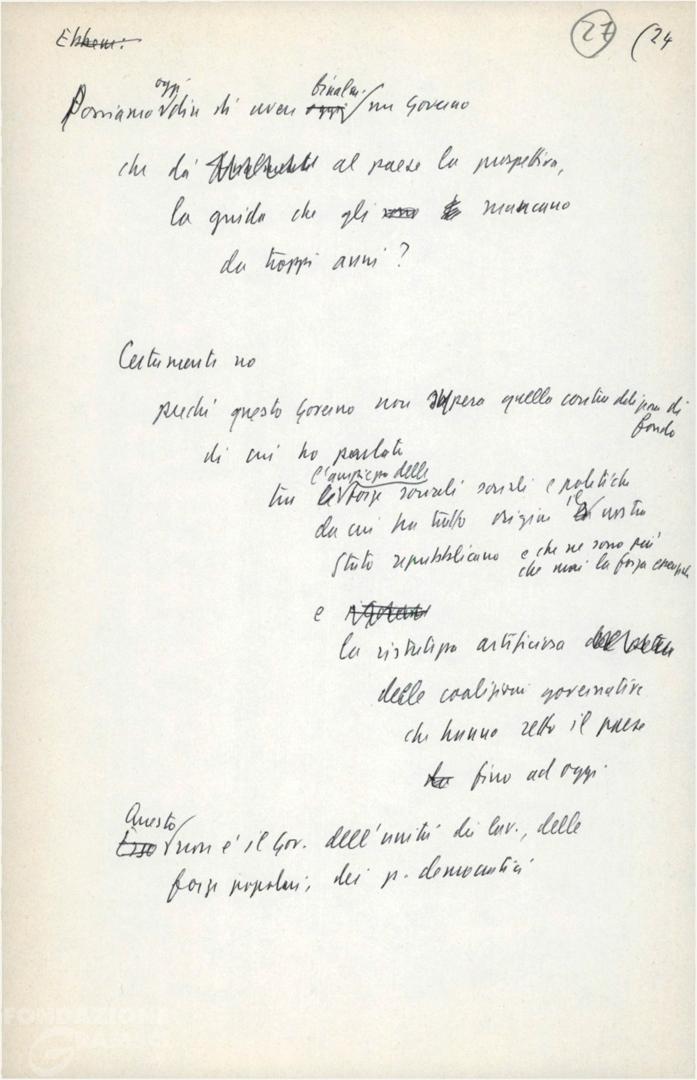 Ebbene:
27 (24
oggi finalm.
Possiamo dire di avere oggi un Governo
che dà finalmente al paese la prospettiva,
la guida che gli mancano
da troppi anni?
Certamente no
perché questo Governo non supera quella contraddizione di
fondo
di cui ho parlato
l'ampiezza delle
tra le forze sociali sociali e politiche
da cui ha tratto origine il nostro
Stato repubblicano e che ne sono più
che mai la forza
e
la ristrettezza artificiosa
delle coalizioni governative
che hanno retto il paese
fino ad oggi
Questo
Esso non è il Gov. dell'unità dei lav., delle
forze popolari, dei p. democratici
FONDAZIONE
GRAMSCI